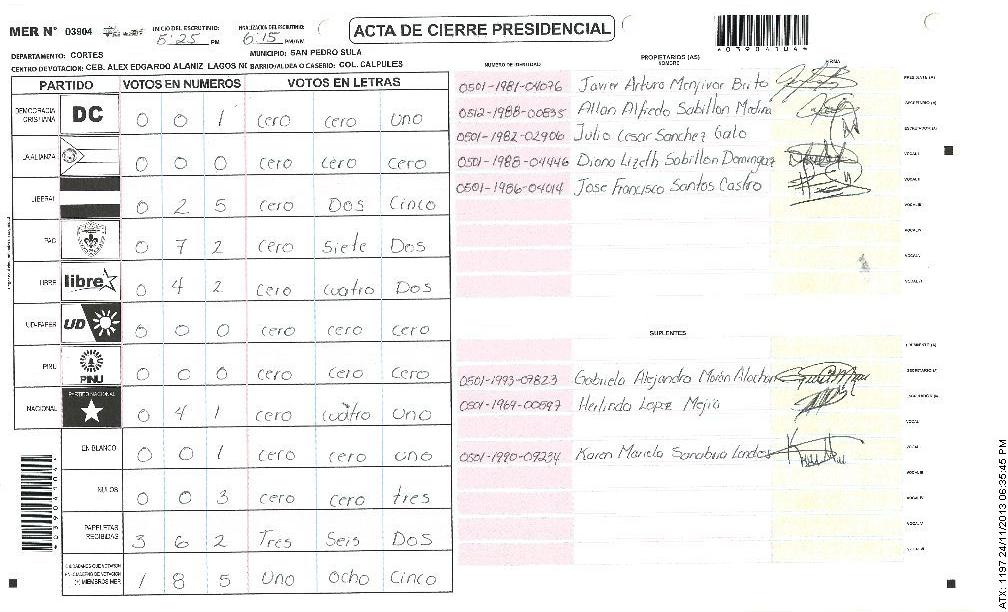 MER N° 03904 INICIO DEL ESCRUTINIO: 5:25 PM FINALIZACION DEL ESCRUTINIO: 6:15 PM/AM ACTA DE CIERRE PRESIDENCIAL
DEPARTAMENTO: CORTES MUNICIPIO: SAN PEDRO SULA
CENTRO DE VOTACION: CEB. ALEX EDGARDO ALANIZ LAGOS NO BARRIO/ALDEA O CASERIO: COL. CALPULES
PARTIDO VOTOS EN NUMEROS VOTOS EN LETRAS
DEMOCRACIA CRISTIANA DC 0 0 1 cero cero uno
LA ALIANZA 0 0 0 cero cero cero
LIBERAL 0 2 5 cero Dos Cinco
PAC 0 7 2 cero siete Dos
LIBRE libre 0 4 2 cero cuatro Dos
UD-FAPER UD 0 0 0 cero cero cero
PINU PINU 0 0 0 cero cero cero
NACIONAL PARTIDO NACIONAL 0 4 1 cero cuatro uno
EN BLANCO 0 0 1 cero cero uno
NULOS 0 0 3 cero cero tres
PAPELETAS RECIBIDAS 3 6 2 Tres Seis Dos
CIUDADANOS QUE VOTARON EN CUADERNO DE VOTACION (+) MIEMBROS MER 1 8 5 Uno Ocho Cinco
NUMERO DE IDENTIDAD PROPIETARIOS (AS) NOMBRE FIRMA
0501-1981-04076 Javier Arturo Menjivar Brito PRESIDENTE (A)
0512-1988-00835 Allan Alfredo Sabillon Medina SECRETARIO (A)
0501-1982-02906 Julio Cesar Sanchez Gato ESCRUTADOR (A)
0501-1988-04446 Diana Lizeth Sabillon Dominguez VOCAL I
0501-1986-04014 Jose Francisco Santos Castro VOCAL II
VOCAL III
VOCAL IV
VOCAL V
VOCAL VI
SUPLENTES
PRESIDENTE (A)
0501-1993-09823 Gabriela Alejandra Morán SECRETARIO (A)
0501-1969-00597 Herlindo Lopez Mejia ESCRUTADOR (A)
VOCAL I
0501-1990-09234 Karen Mariela Sanabria VOCAL II
VOCAL III
VOCAL IV
VOCAL V
VOCAL VI
4039041044
4039041044
ATX: 1197 24/11/2013 06:35:45 PM